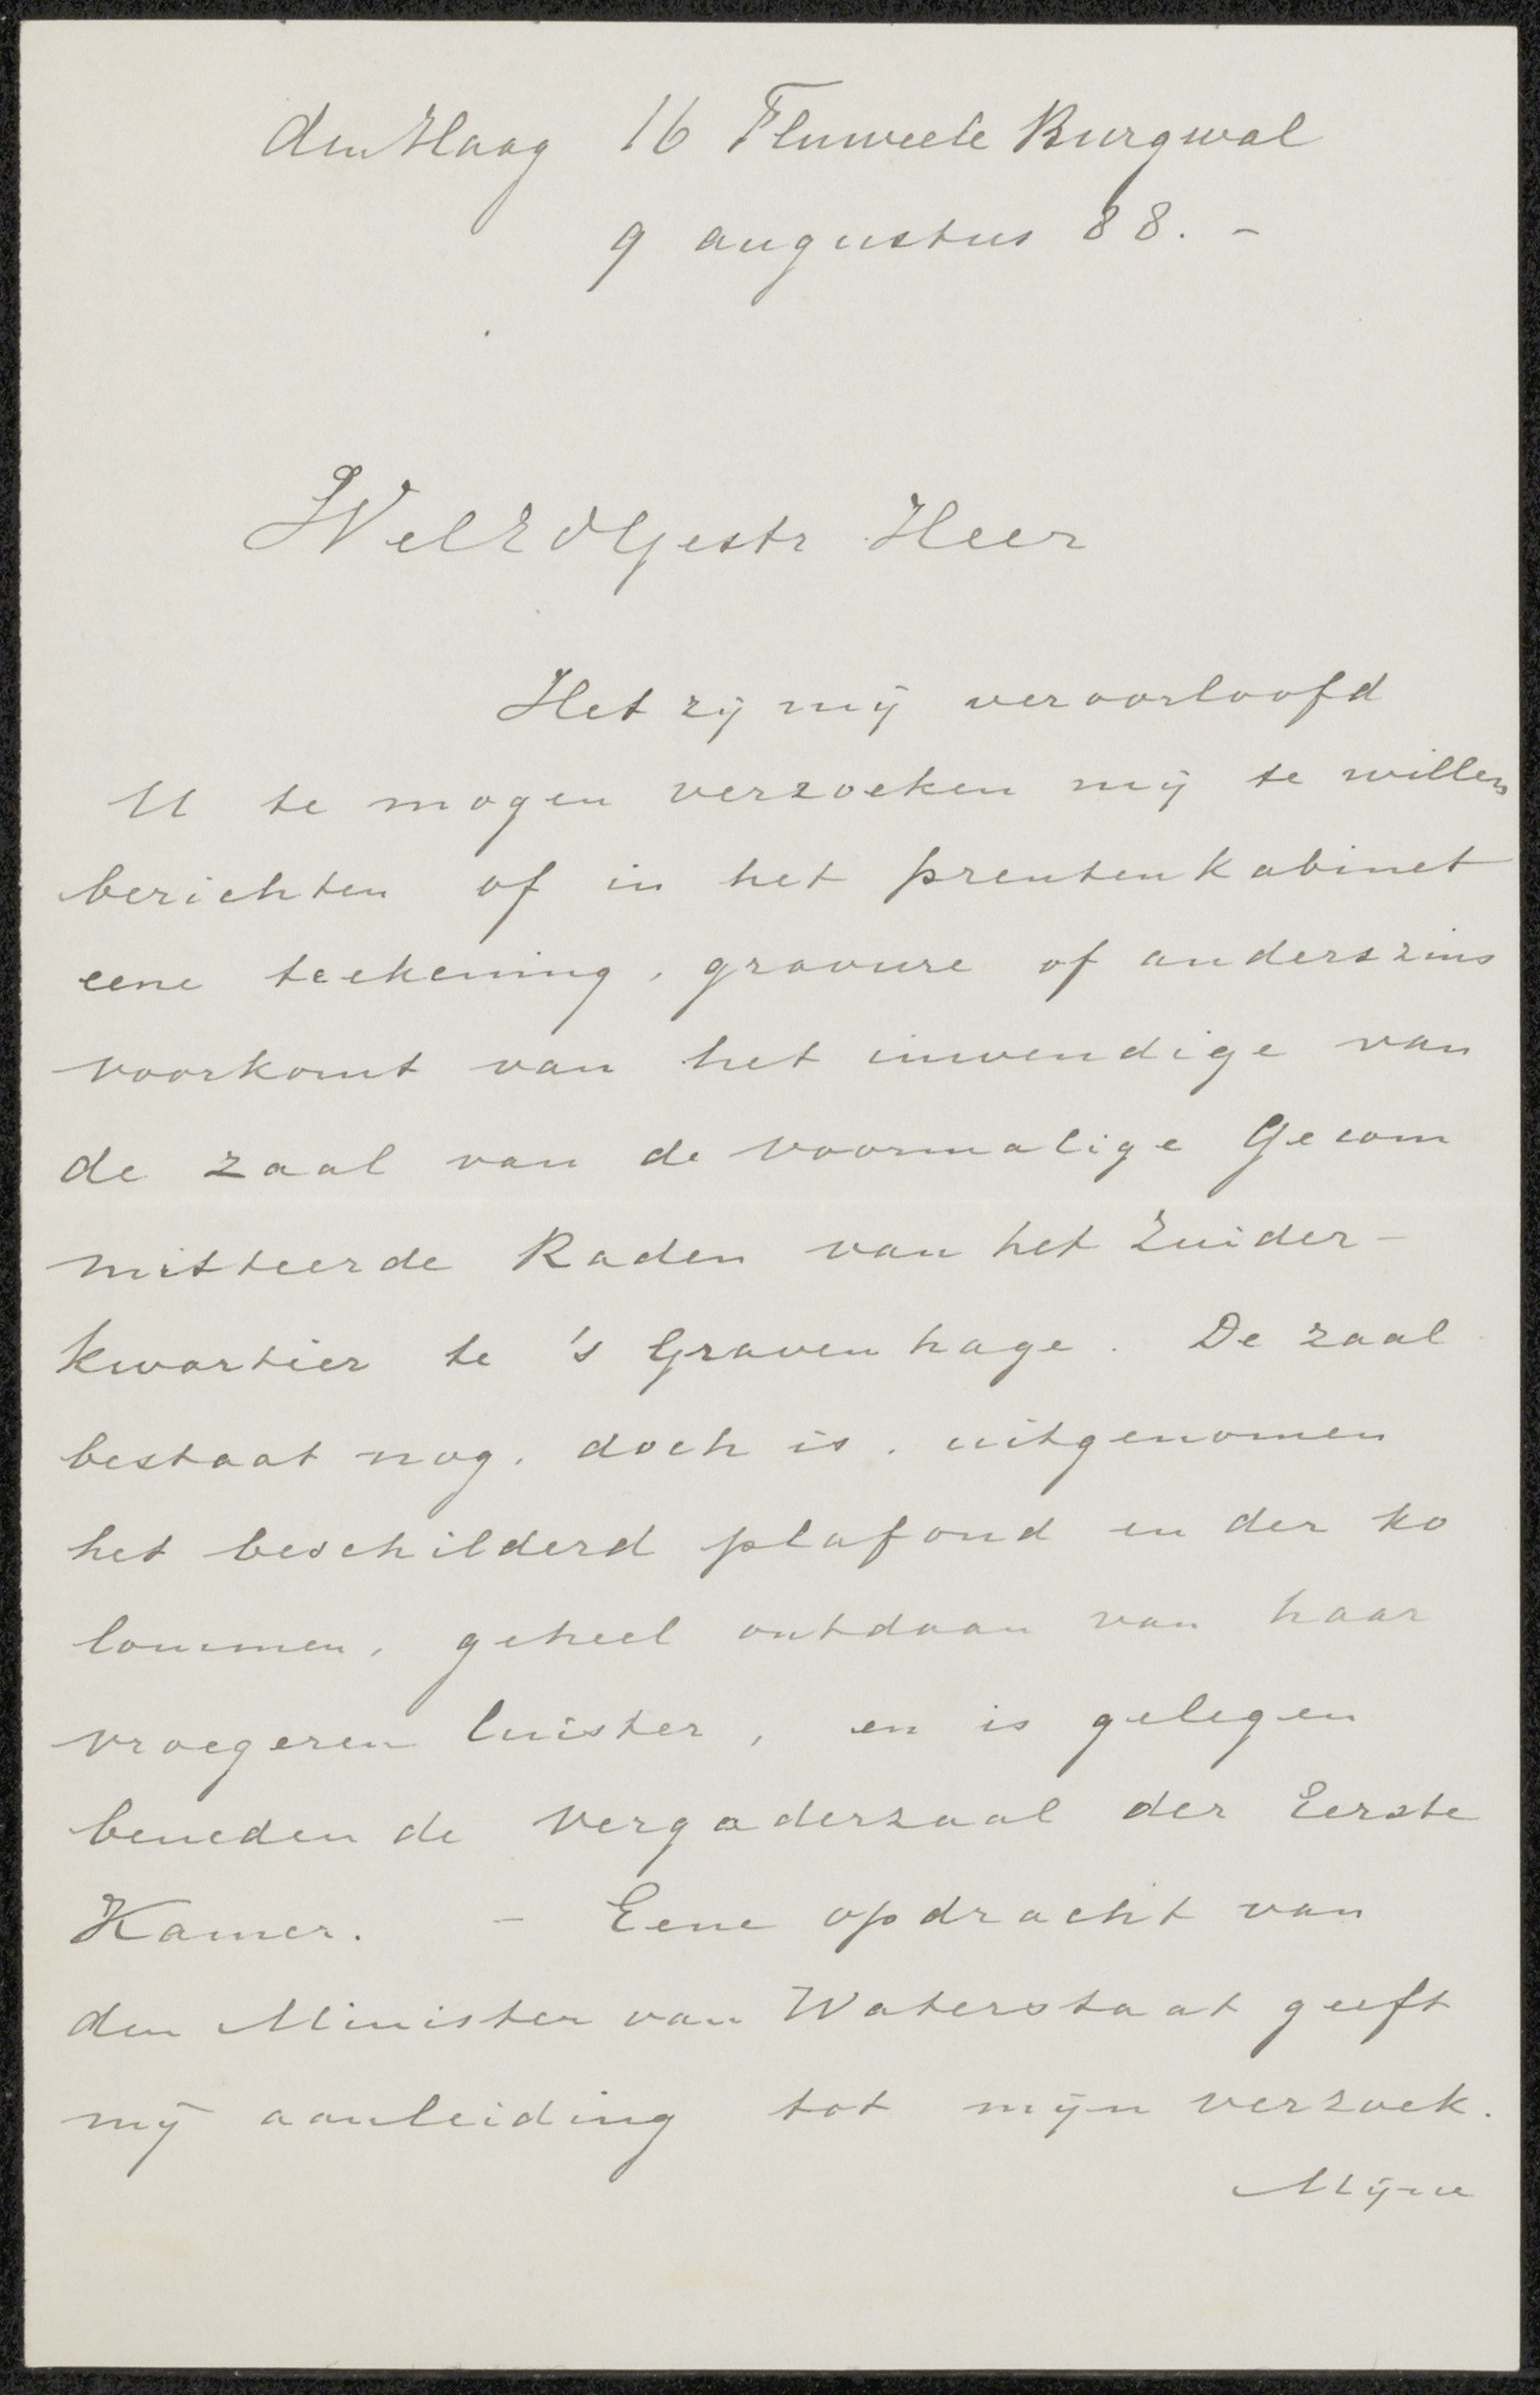 den Haag 16 Fluweele Burgwal
9 augustus 88. -
WelEdGestr Heer
Het zij mij veroorloofd
U te mogen verzoeken mij te willen
berichten of in het prentenkabinet
eene teekening, gravure of anderszins
voorkomt van het inwendige van
de zaal van de voormalige Gecom
mitteerde Raden van het Zuider-
kwartier te 's Gravenhage. De zaal
bestaat nog, doch is, uitgenomen
het beschilderd plafond en der ko
lommen, geheel ontdaan van haar
vroegeren luister, en is gelegen
beneden de vergaderzaal der Eerste
Kamer. - Eene opdracht van
den Minister van Waterstaat geeft
mij aanleiding tot mijn verzoek.
Mijne